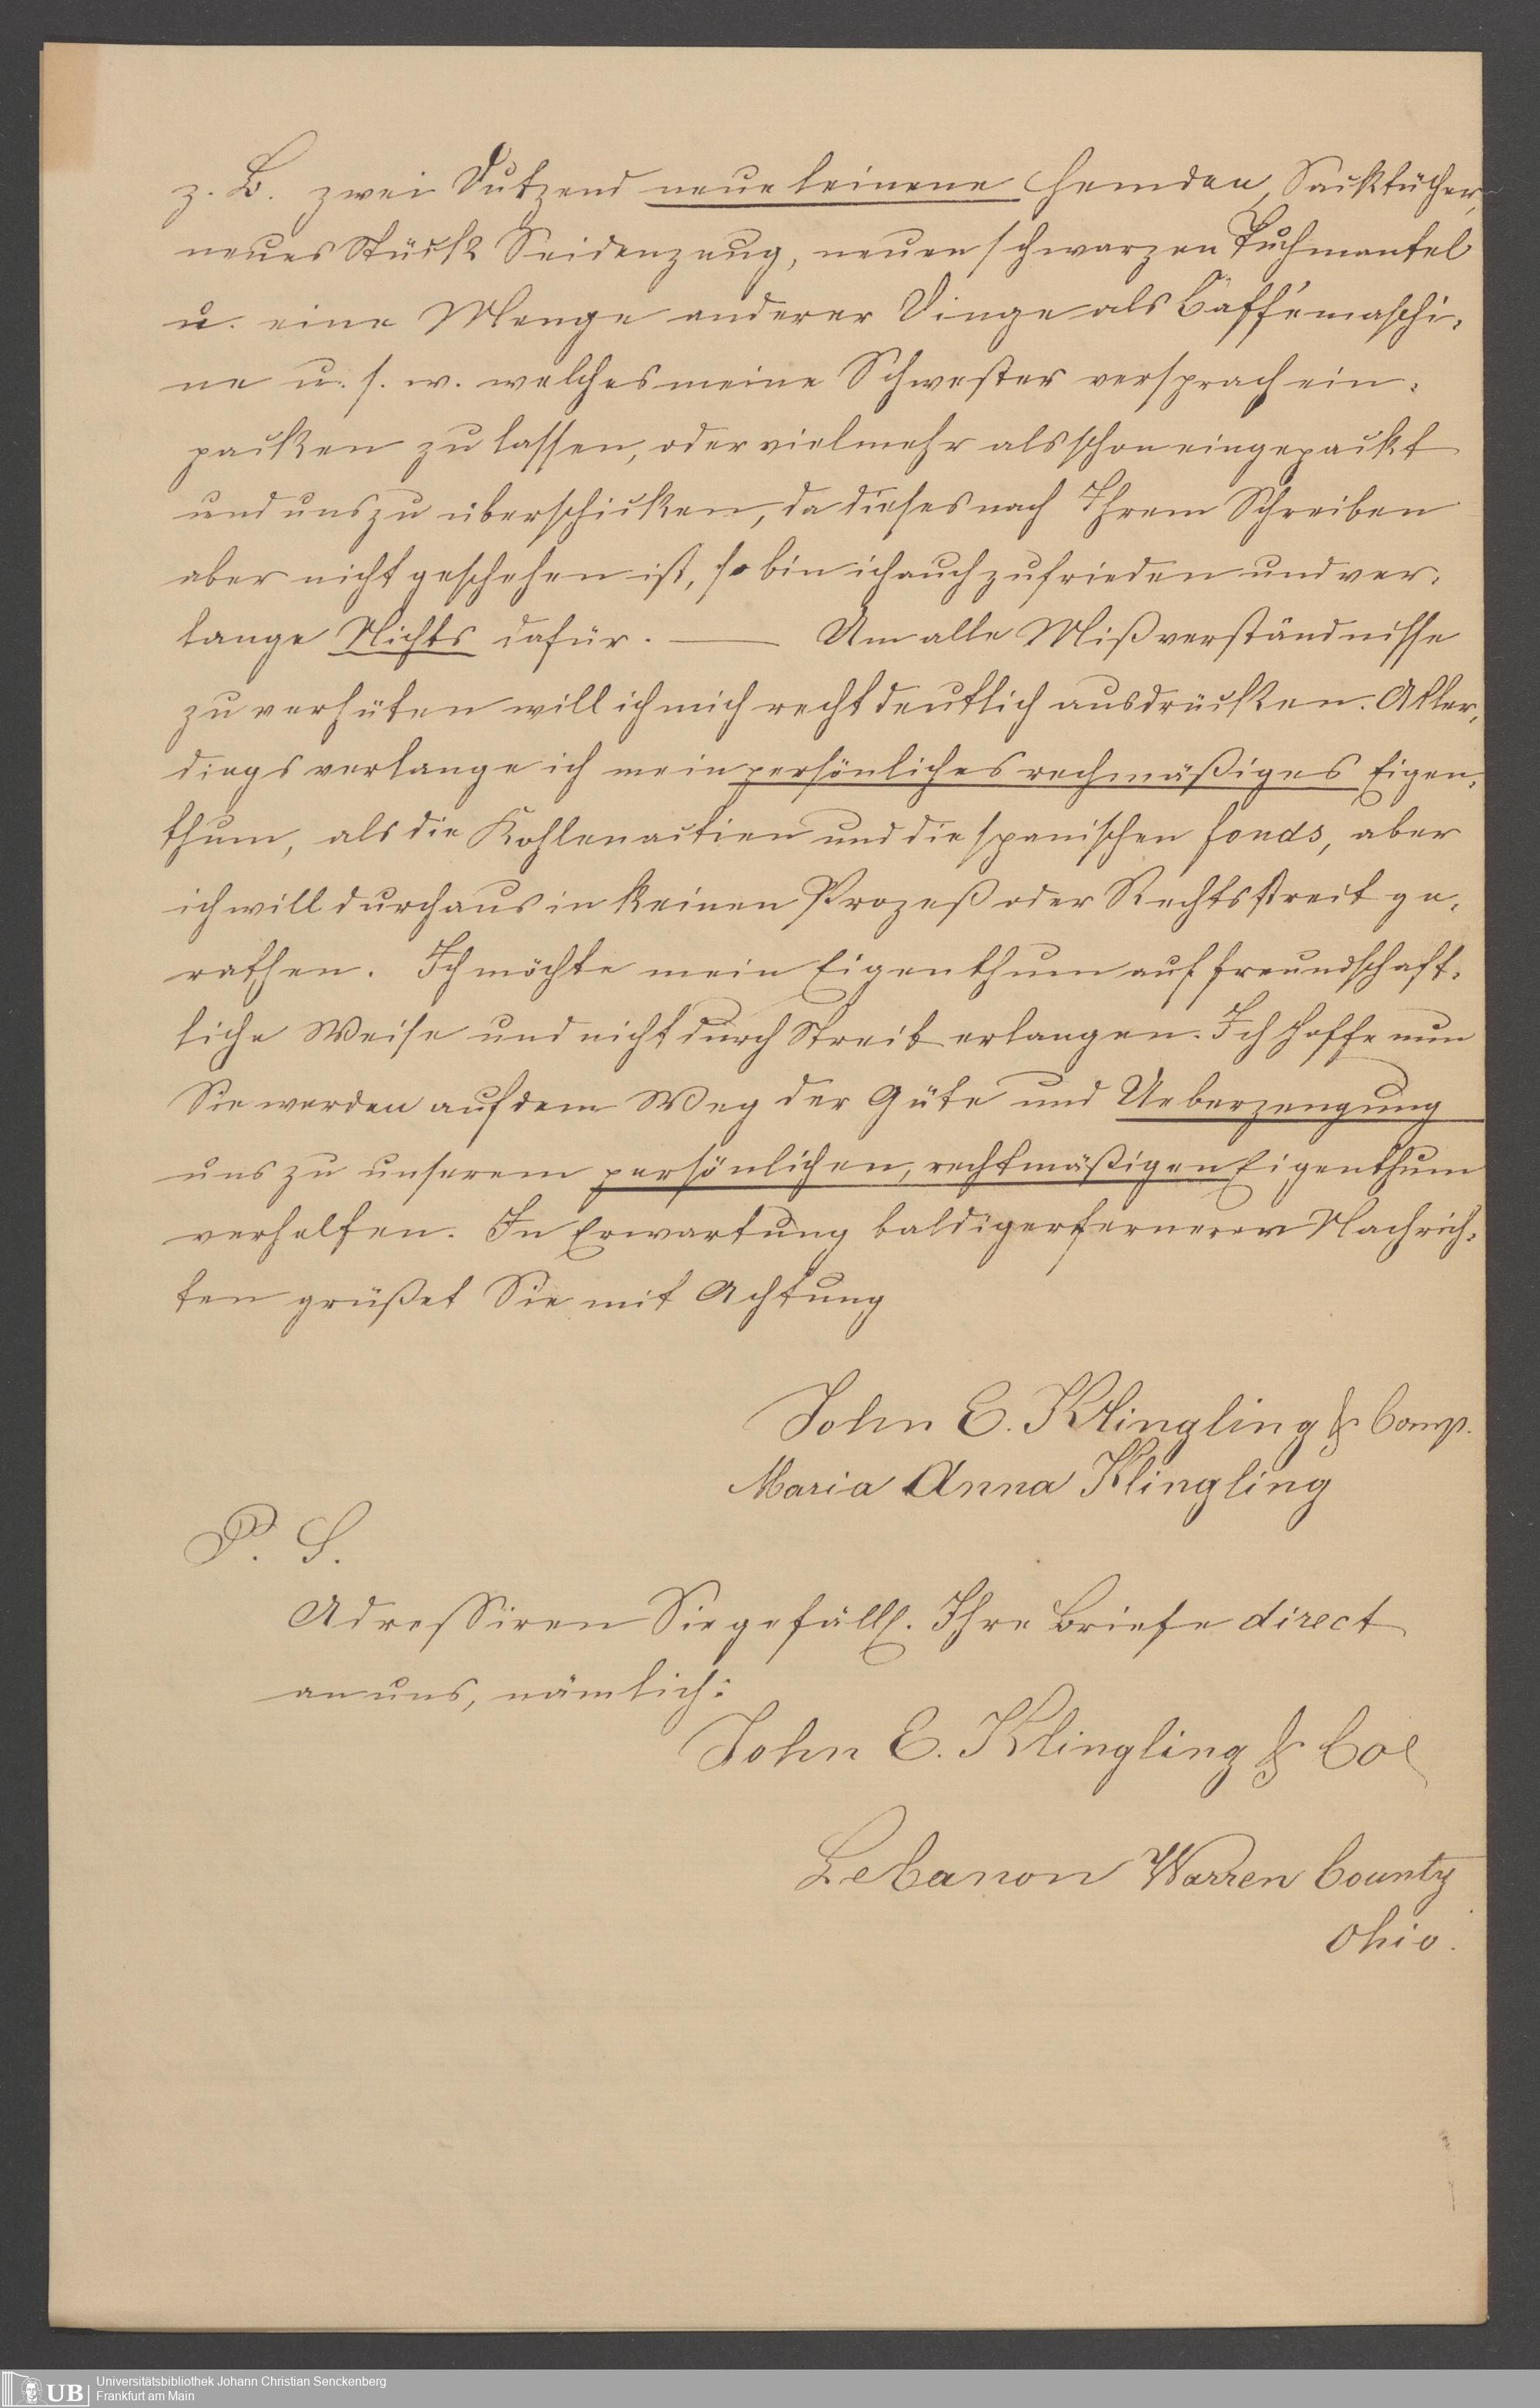 z. B. zwei Dutzend neue leinene Hemden, Sacktücher,
neues Stück Seidenzeug, neuen schwarzen Tuchmantel
u. eine Menge anderer Dinge als Caffémaschi-
ne u. s. w. welches meine Schwester versprach ein-
packen zu lassen, oder vielmehr als schon eingepackt
und uns zu überschicken, da dieses nach Ihrem Schreiben
aber nicht geschehen ist, so bin ich auch zufrieden und ver-
lange Nichts dafür. — Um alle Mißverständnisse
zu verhüten will ich mich recht deutlich ausdrücken. Aller-
dings verlange ich mein persönliches rechmäßiges Eigen-
thum, als die Kohlenactien und die spanischen fonds, aber
ich will durchaus in keinen Prozeß oder Rechtsstreit ge-
rathen. Ich möchte mein Eigenthum auf freundschaft-
liche Weise und nicht durch Streit erlangen. Ich hoffe nun
Sie werden auf dem Weg der Güte und Ueberzeugung
uns zu unserem persönlichen, rechtmäßigen Eigenthum
verhelfen. In Erwartung baldiger fernerer Nachrich-
ten grüßet Sie mit Achtung
John E. Klingling & Comp.
Maria Anna Klingling
P. S.
Adressiren Sie gefälll. Ihre Briefe direct
an uns, nämlich:
John E. Klingling & Co
Lebanon Warren County
Ohio.
UB Universitätsbibliothek Johann Christian Senckenberg
Frankfurt am Main